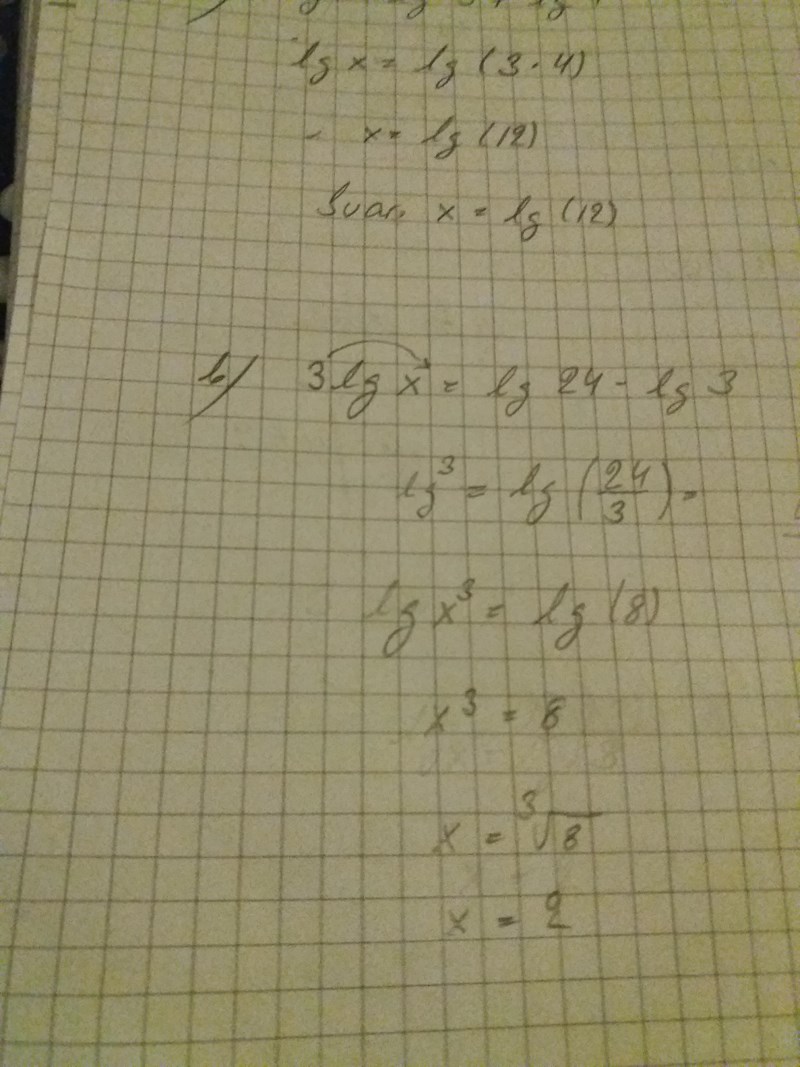 lg x = lg (3 · 4)
x = lg (12)
Svar. x = lg (12)
b) 3 lg x = lg 24 - lg 3
lg³ = lg (24/3) =
lg x³ = lg (8)
x³ = 8
x = ³√8
x = 2